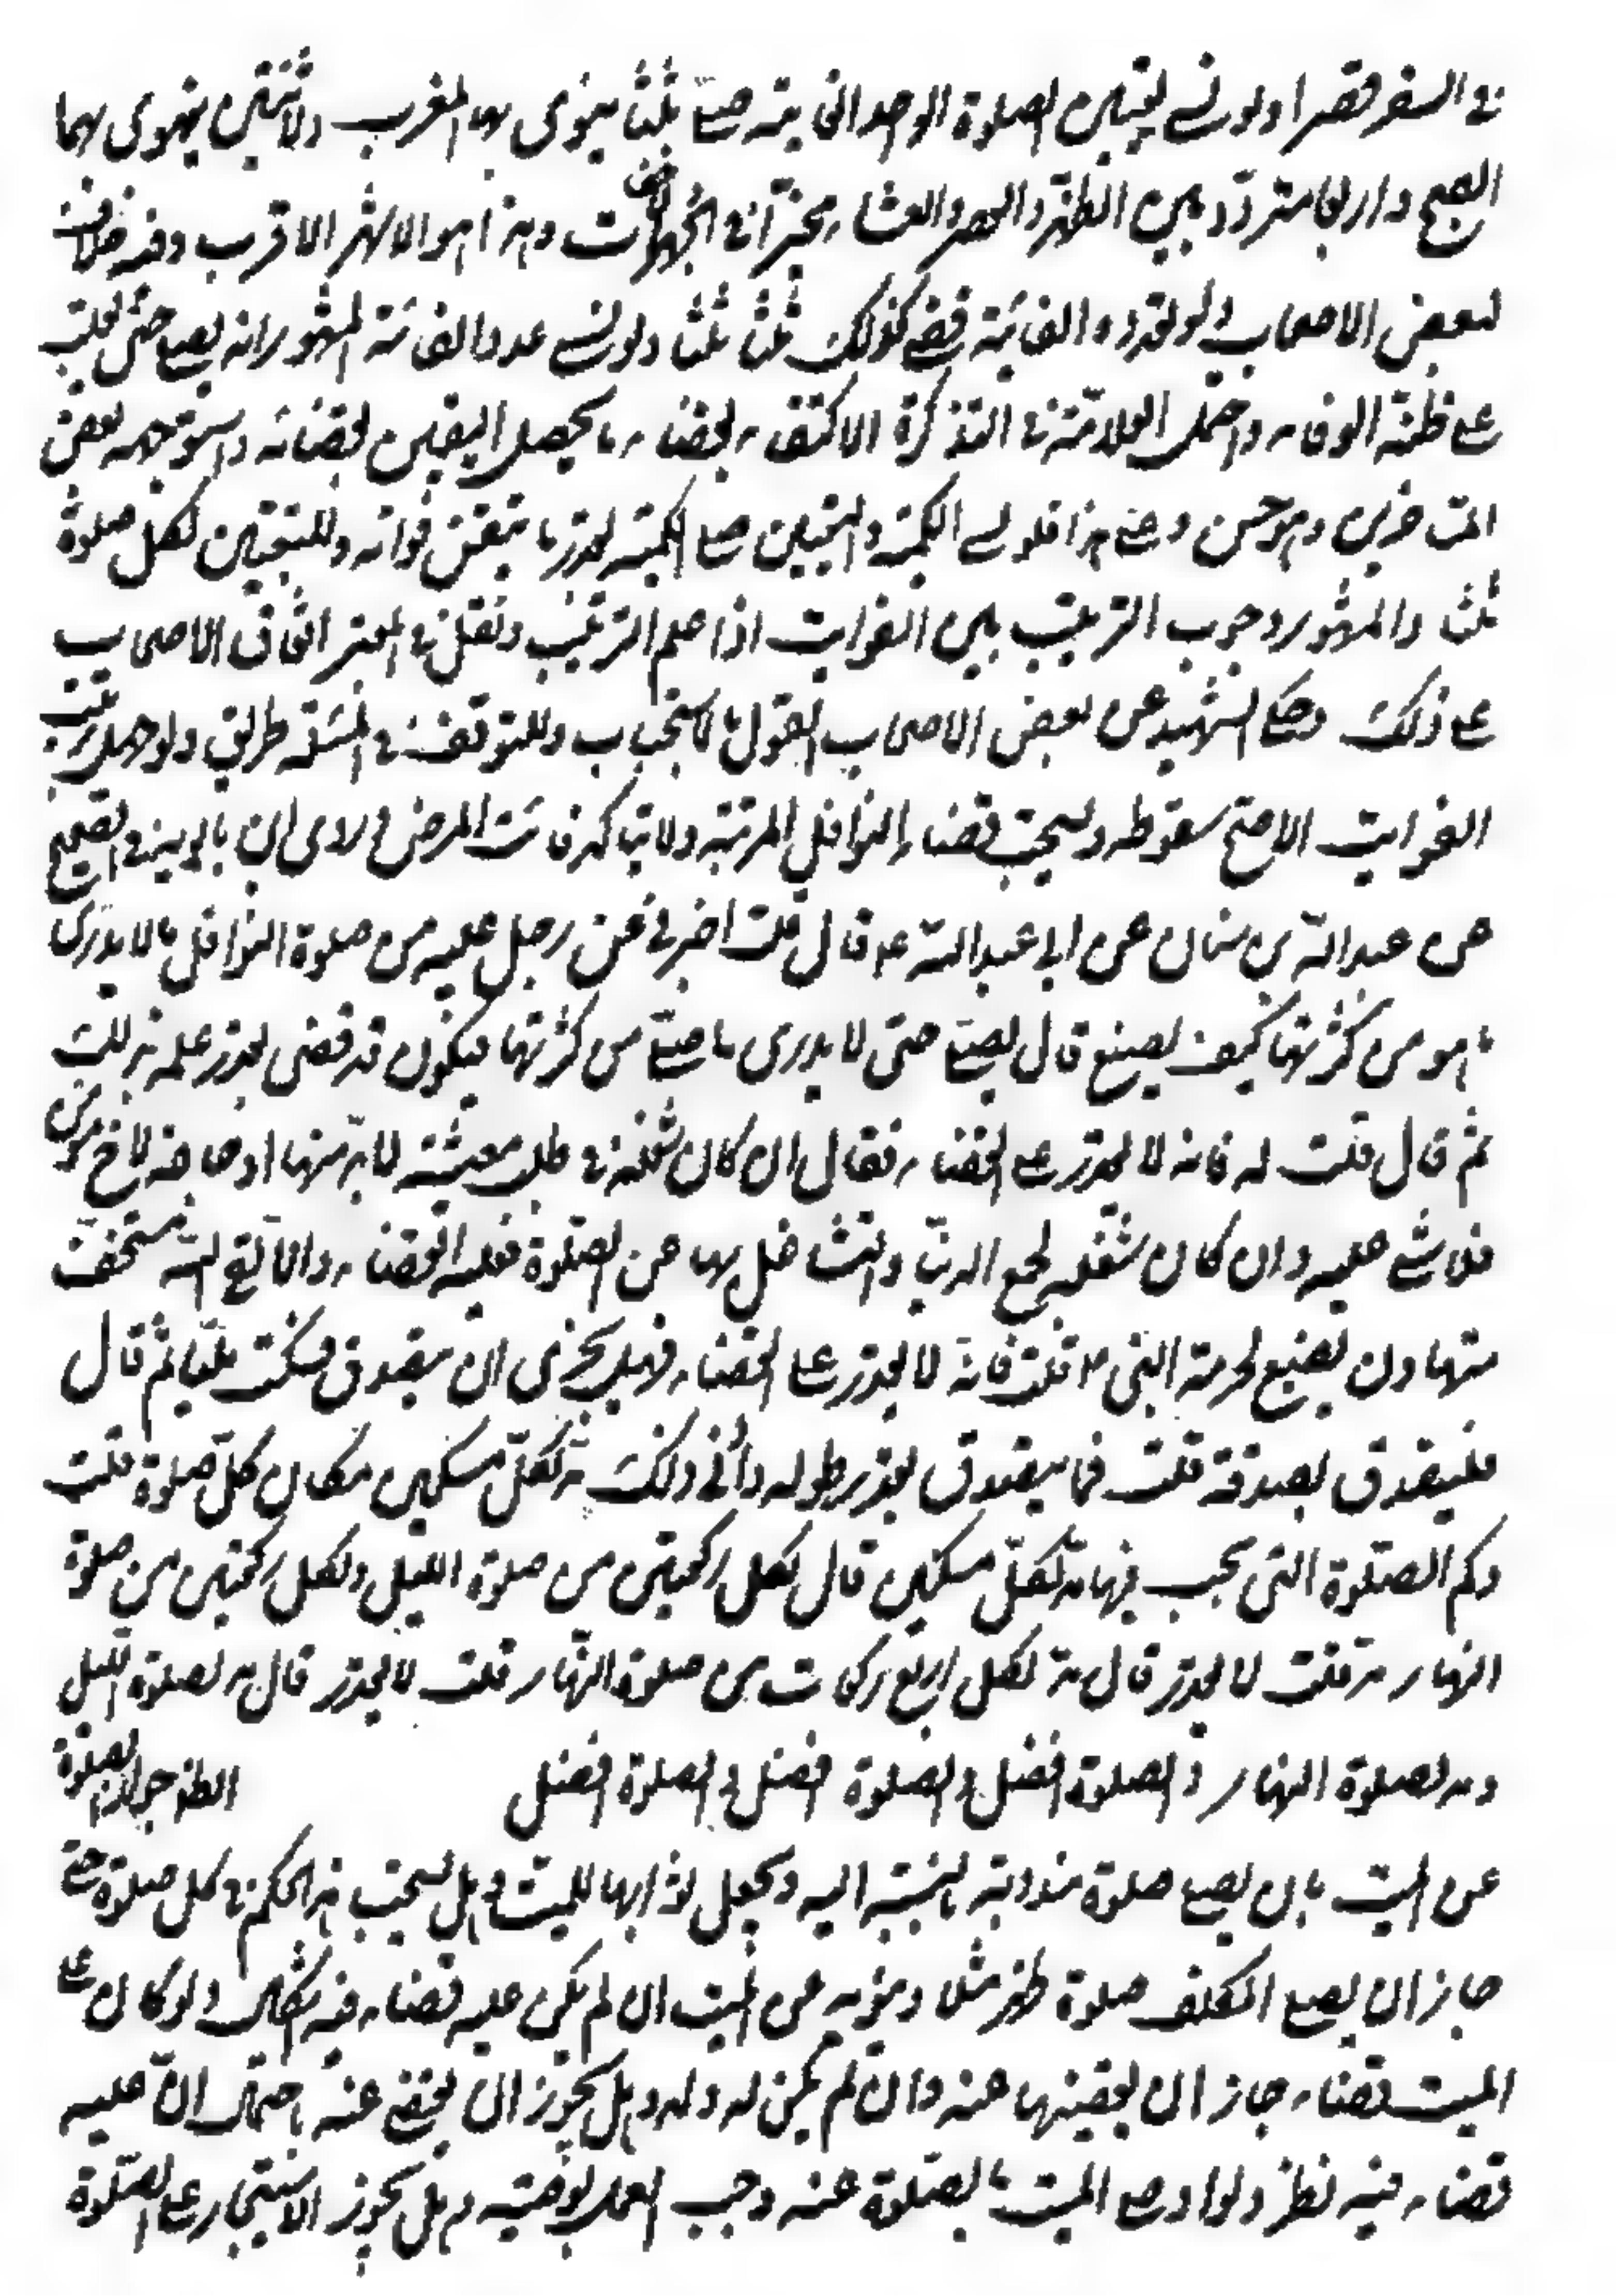 في السفر قصرا ولو نسي تعيين الصلوة الواحد الفائتة صلّى ثلثا ينوي بها المغرب واثنتين ينوي بهما
الصبح واربعا مترددا بين الظهر والعصر والعشاء مخيرا في الجهر والاخفات وهذا هو الاشهر الاقرب وفيه خلاف
لبعض الاصحاب ولو تعدد الفائتة قضى كذلك ثلثا ثلثا ولو نسي عدد الفائتة المشهور انه يصلي حتى يغلب
على ظنه الوفاء واحتمل العلامة في التذكرة الاكتفاء بقضاء ما يحصل اليقين بقضائه واستوجهه بعض
المتاخرين وهو حسن وعلى هذا فلو نسي الكمية والتعيين صلى الكمية بقدر ما تيقن فواته وللتعيين لكل صلوة
ثلثا والمشهور وجوب الترتيب بين الفوايت اذا علم الترتيب ونقل في المعتبر اتفاق الاصحاب
على ذلك وحكى الشهيد عن بعض الاصحاب القول بالاستحباب وللتوقف في المسئلة طريق ولو جهل ترتيب
الفوايت الاصح سقوطه ويستحب قضاء النوافل المرتبة ولا يتاكد فائت المرض وروى ابن بابويه في الصحيح
عن عبد الله بن سنان عن ابي عبد الله ع قال قلت اخبرني عن رجل عليه من صلوة النوافل ما لا يدري
ما هو من كثرتها كيف يصنع قال يصلّي حتى لا يدري ما صلّى من كثرتها فيكون قد قضى بقدر علمه من ذلك
ثم قال قلت له فانه لا يقدر على القضاء فقال ان كان شغله في طلب معيشة لا بد منها او حاجة لاخ مؤمن
فلا شيء عليه وان كان شغله لجمع الدنيا والتشاغل بها عن الصلوة فعليه القضاء والا لقي الله مستخف
متهاون مضيع لحرمة النبي ص قلت فانه لا يقدر على القضاء فهل يجزي ان يتصدق فسكت مليا ثم قال
فليتصدق بصدقة قلت فما يتصدق بقدر طوله وادنى ذلك مد لكل مسكين مكان كل صلوة قلت
وكم الصلوة التي يجب فيها مد لكل مسكين قال لكل ركعتين من صلوة الليل ولكل ركعتين من صلوة
النهار مد قلت لا يقدر قال مد لكل اربع ركعات من صلوة النهار قلت لا يقدر قال مد لصلوة الليل
ومد لصلوة النهار والصلوة افضل والصلوة افضل والصلوة افضل الظ جواز الصلوة
عن الميت بان يصلي صلوة مندوبة بالنسبة اليه ويجعل ثوابها للميت وهل يستحب هذا الحكم في كل صلوة حتى
جاز ان يصلي المكلف صلوة ظهر مثلا وينويه عن الميت ان لم يكن عليه قضاء فيه اشكال ولو كان على
الميت قضاء جاز ان يقضيها عنه وان لم يكن له ولد وهل يجوز ان يقضي عنه باحتمال انّ عليه
قضاء فيه نظر ولو اوصى الميت بالصلوة عنه وجب العمل بوصيته وهل يجوز الاستيجار على الصلوة